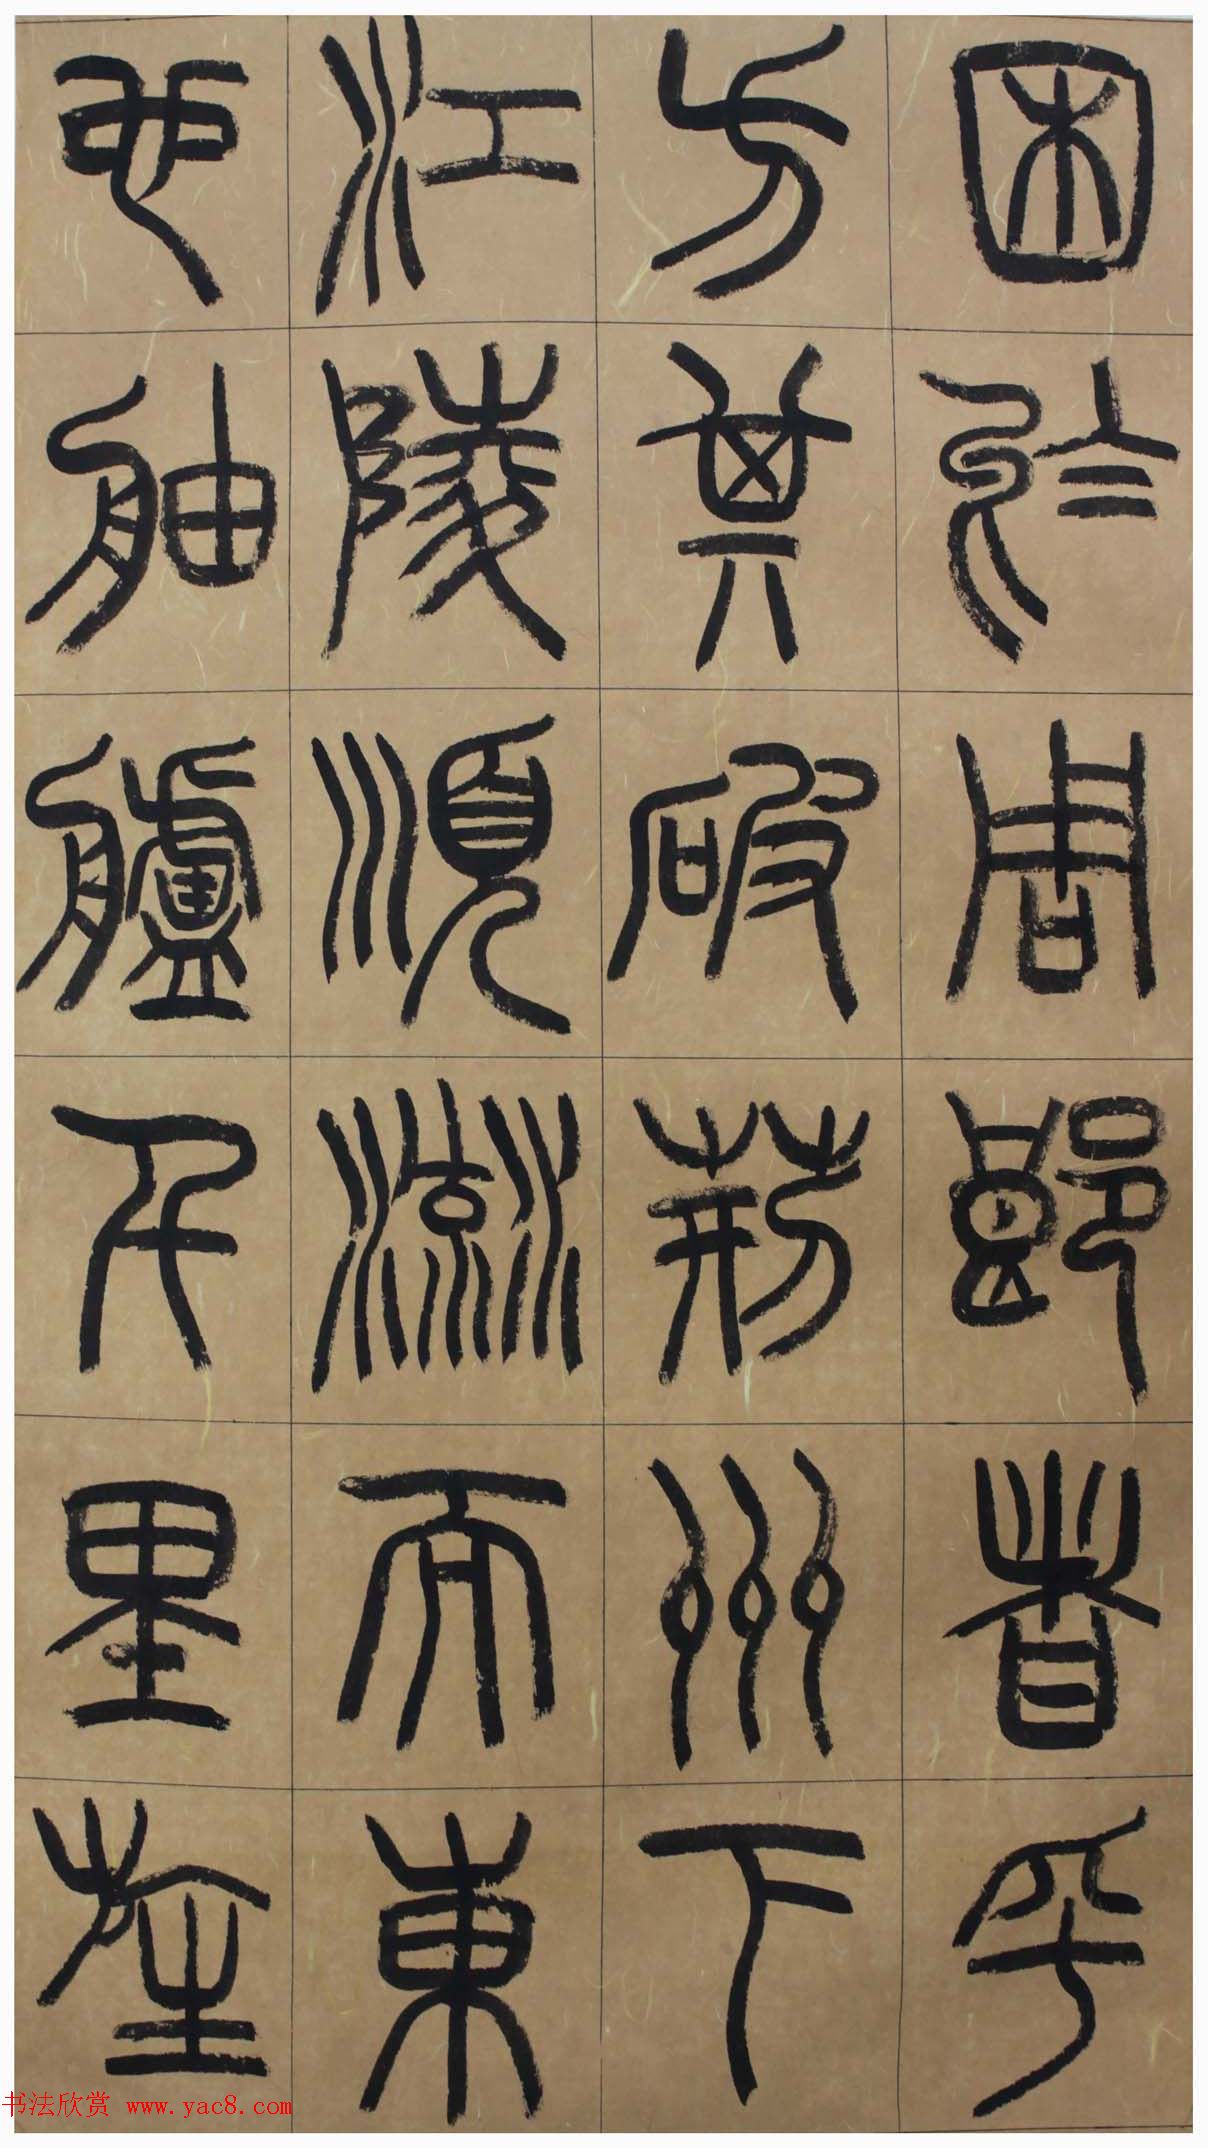 困於周郎者乎
方其破荊州下
江陵順流而東
也舳艫千里旌
书法欣赏 www.yac8.com